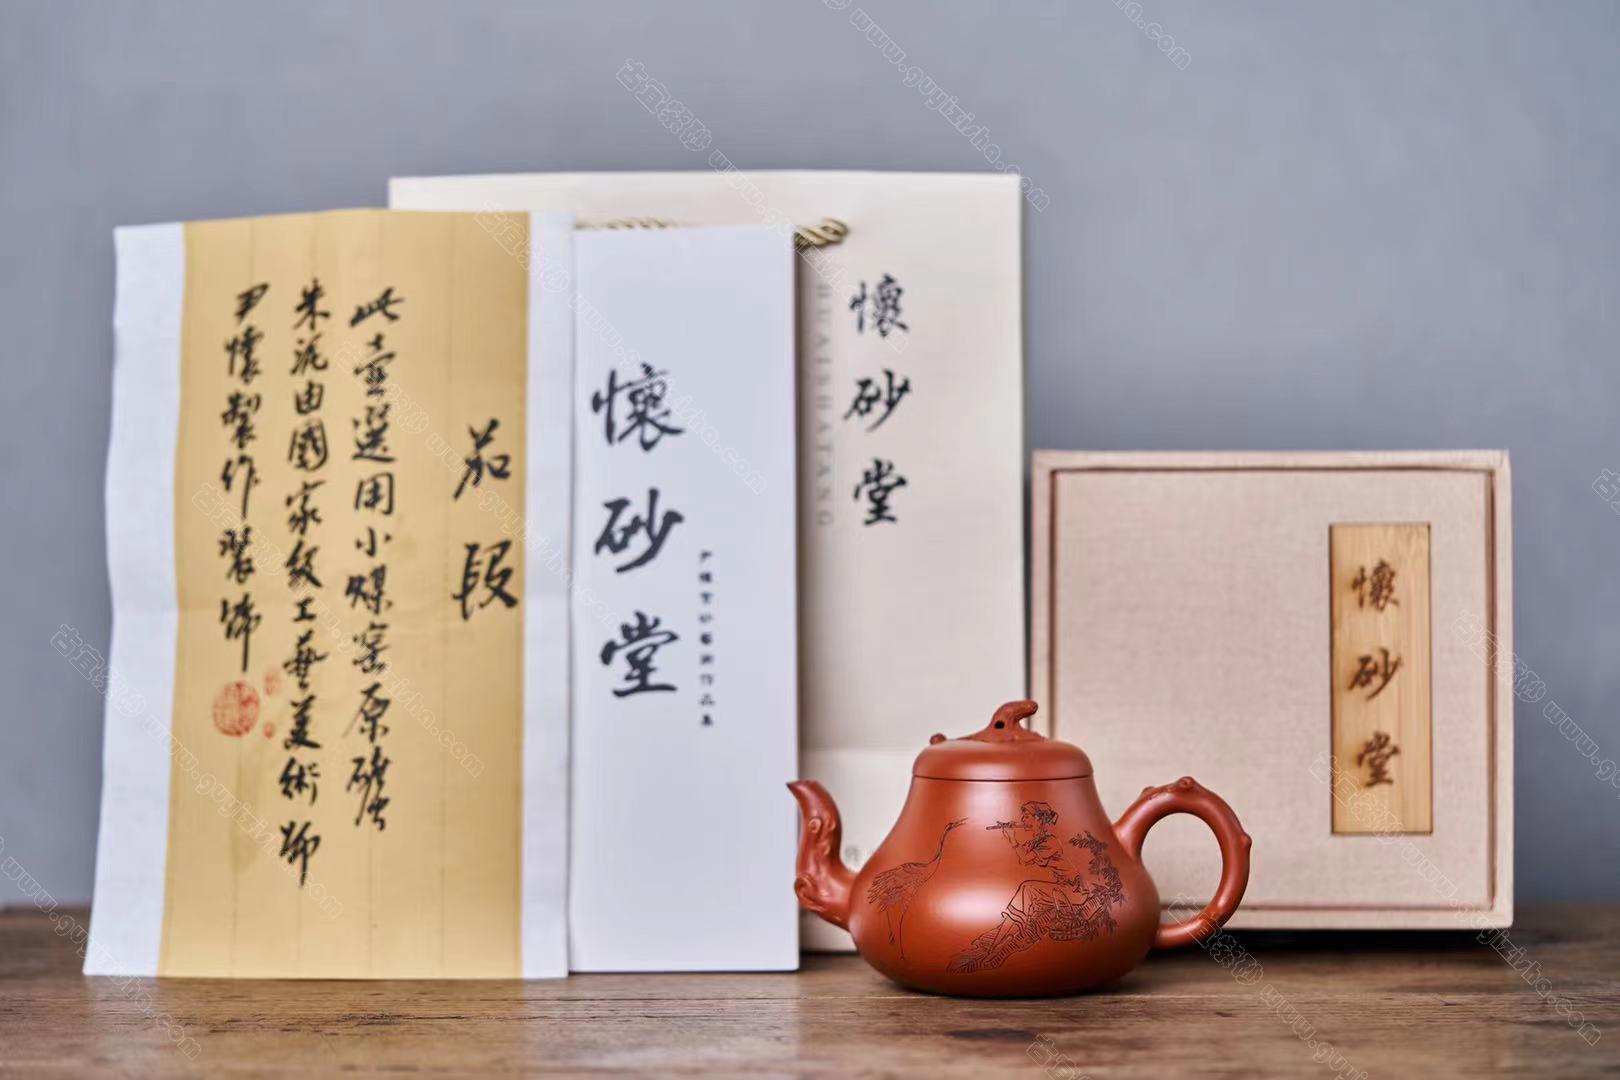 茄段
此壺選用小煤窑原礦
朱泥由國家級工藝美術師
尹懷製作裝飾
懷砂堂
懷砂堂
HUAISHATANG
懷砂堂
古宜紫砂 www.guyizisha.com